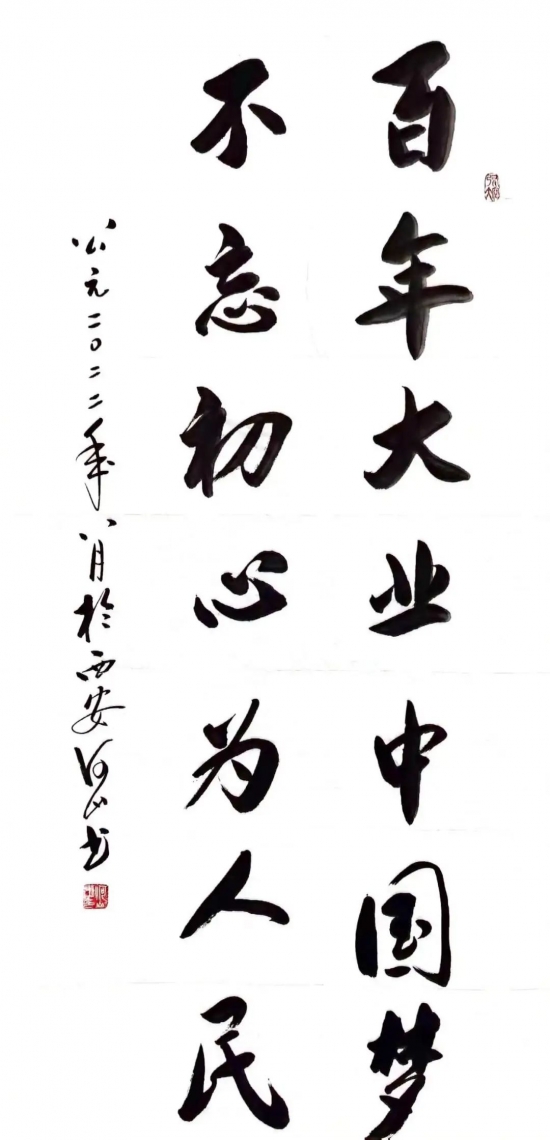 百年大业中国梦
不忘初心为人民
公元二〇二二年八月於西安河山书